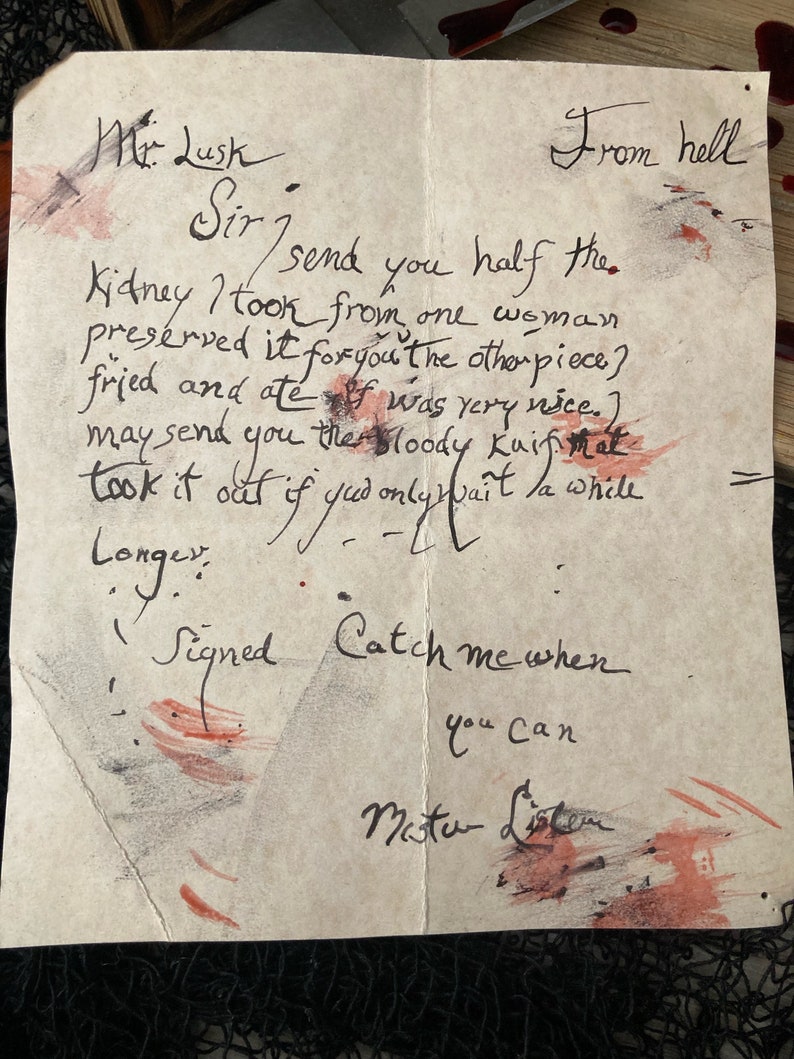 Mr. Lusk From hell
Sir I
send you half the
Kidney I took from one woman
preserved it for you the other piece I
fried and ate it was very nice. I
may send you the bloody knif that
took it out if you only wait a while
Longer.
Signed Catch me when
you can
Mister